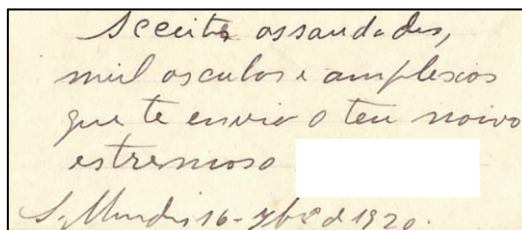 Acceita as saudades,
mil osculos e amplexos
que te envia o teu noivo
estremoso
16 - 7bro d 1920.